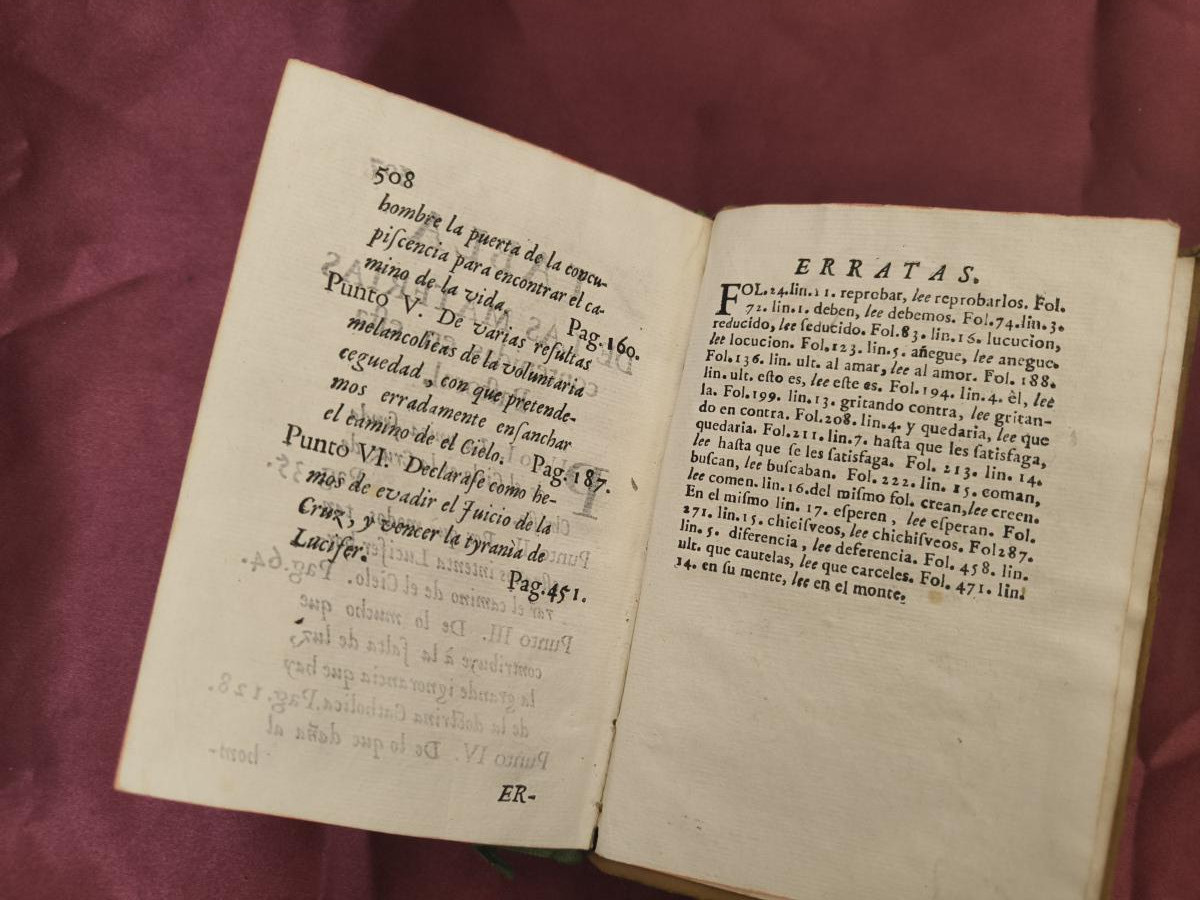 508
hombre la puerta de la concu-
piſcencia para encontrar el ca-
mino de la vida. Pag.160.
Punto V. De varias reſultas
melancolicas de la voluntaria
ceguedad, con que pretende-
mos erradamente enſanchar
el camino de el Cielo. Pag.187.
Punto VI. Declaraſe como he-
mos de evadir el Juicio de la
Cruz, y vencer la tyrania de
Lucifer. Pag.451.
ER-
ERRATAS.
FOL.24.lin.11. reprobar, lee reprobarlos. Fol.
72. lin.1. deben, lee debemos. Fol.74.lin.3.
reducido, lee ſeducido. Fol.83. lin.16. lucucion,
lee locucion. Fol.123. lin.5. añegue, lee anegue.
Fol.136. lin. ult. al amar, lee al amor. Fol. 188.
lin. ult. eſto es, lee eſte es. Fol.194. lin.4. èl, lee
la. Fol.199. lin.13. gritando contra, lee gritan-
do en contra. Fol.208. lin.4. y quedaria, lee que
quedaria. Fol.211. lin.7. haſta que les ſatisfaga,
lee haſta que ſe les ſatisfaga. Fol. 213. lin. 14.
buſcan, lee buſcaban. Fol. 222. lin. 15. coman,
lee comen. lin.16.del miſmo fol. crean,lee creen.
En el miſmo lin. 17. eſperen, lee eſperan. Fol.
271. lin.15. chiciſveos, lee chichiſveos. Fol287.
lin.5. diferencia, lee deferencia. Fol. 458. lin.
ult. que cautelas, lee que carceles. Fol. 471. lin.
14. en ſu mente, lee en el monte.